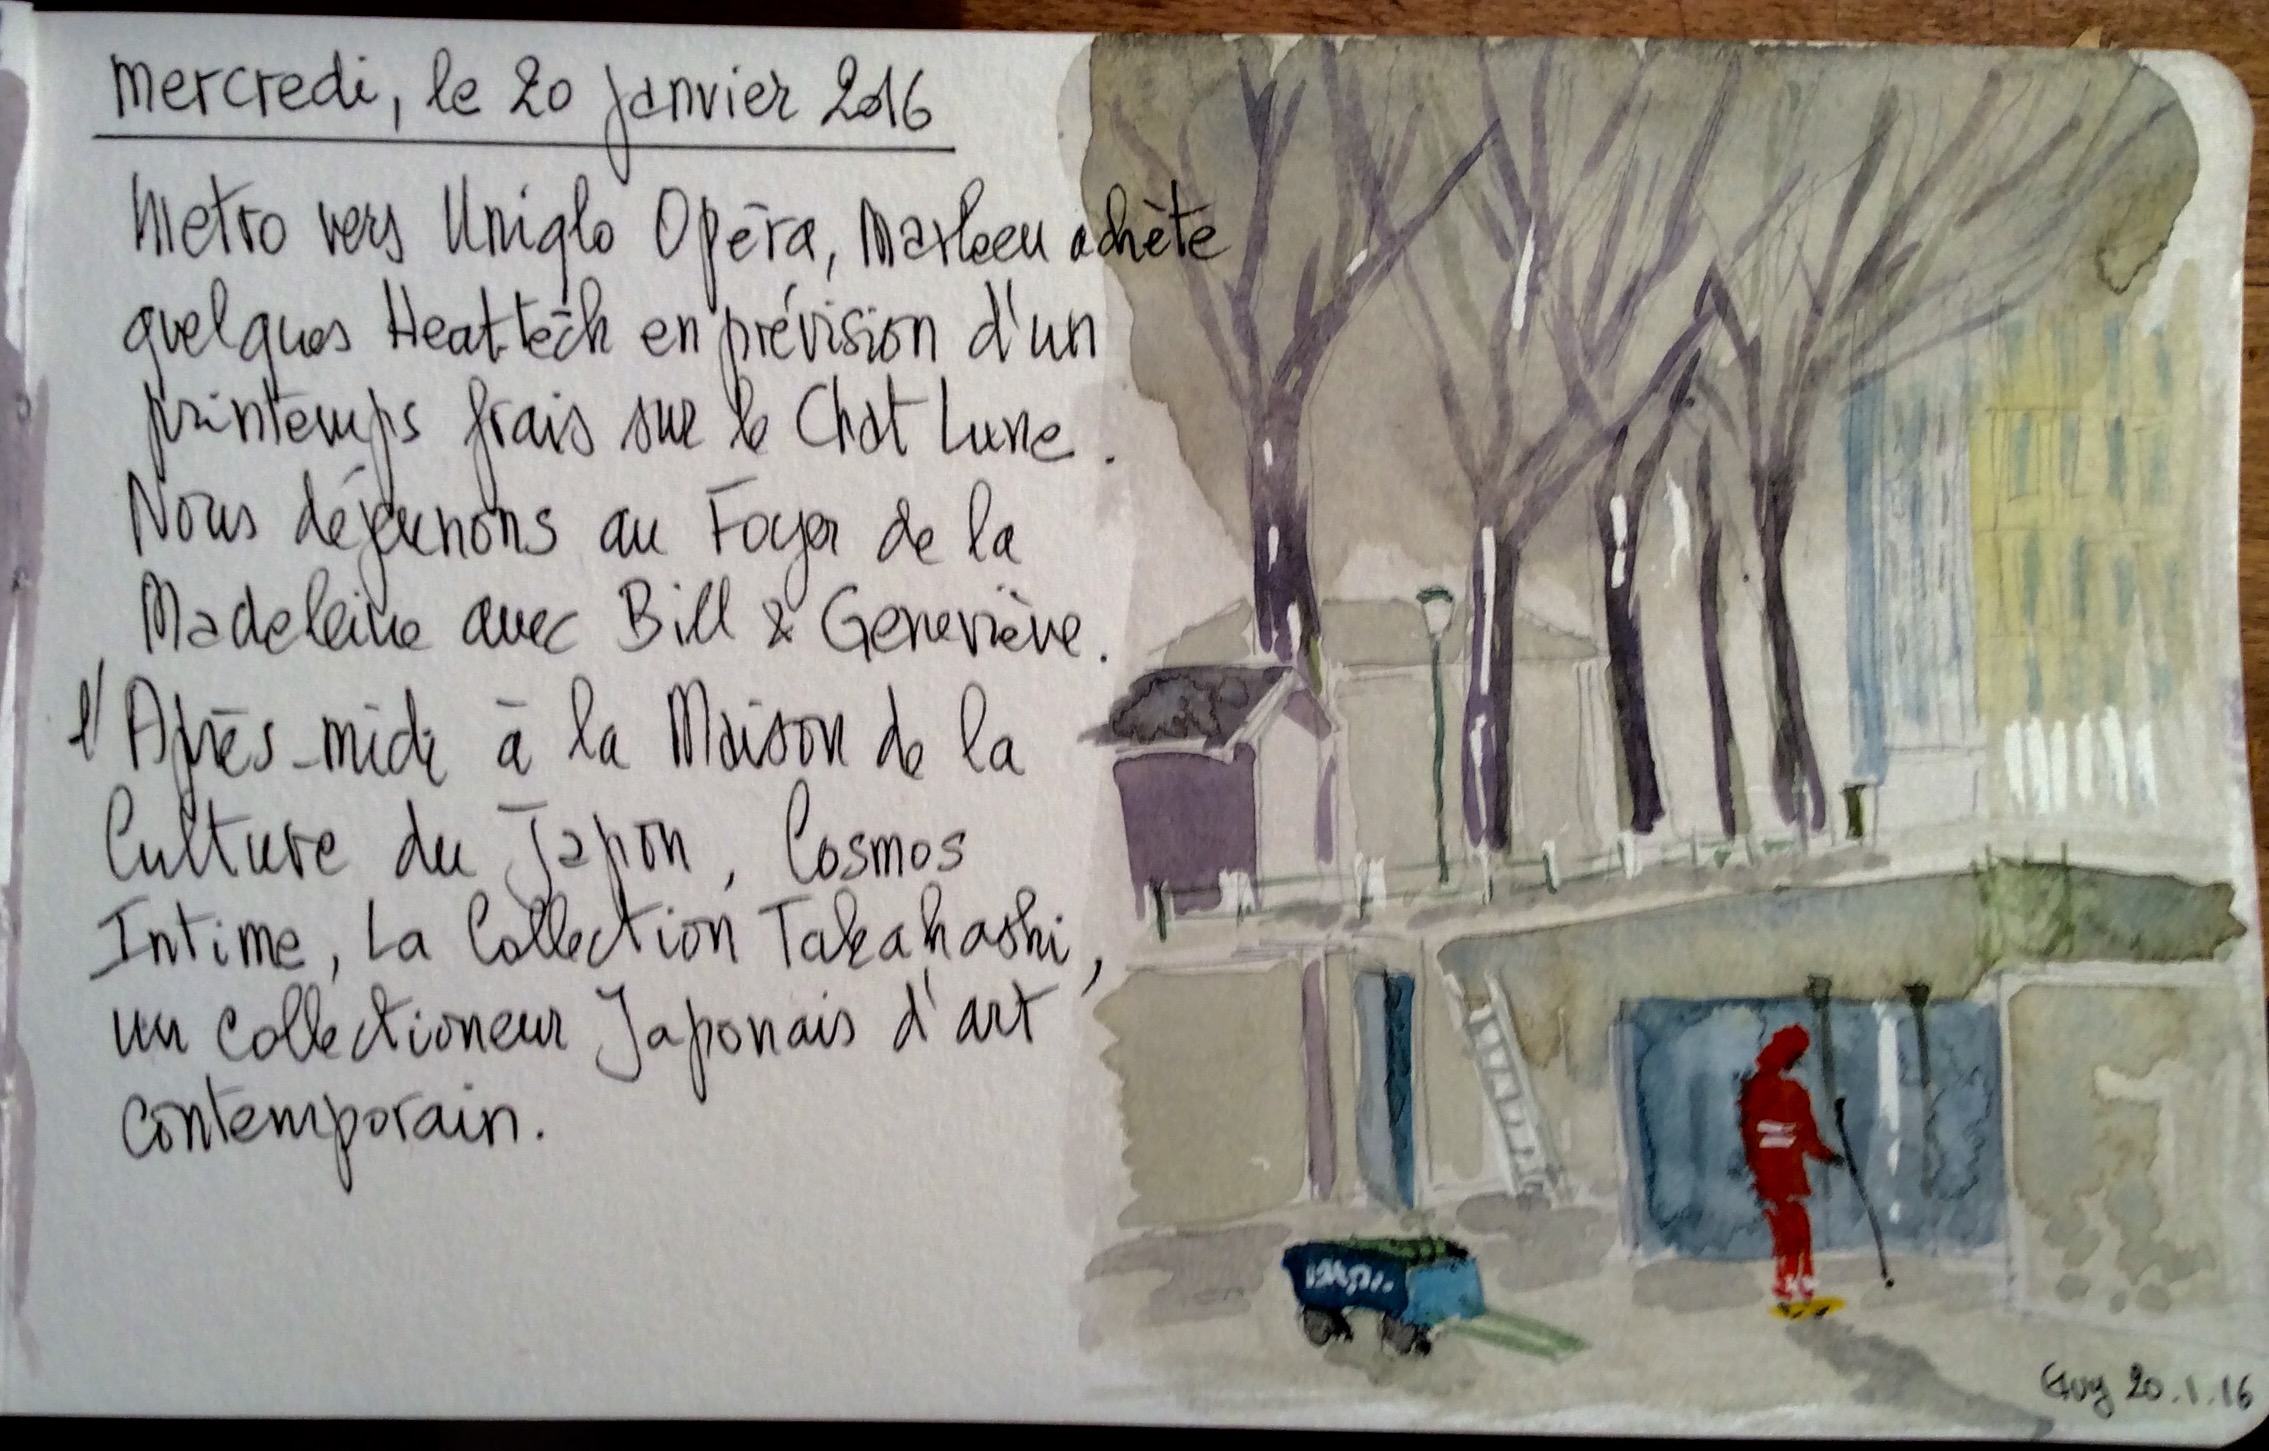 Mercredi, le 20 janvier 2016
Metro vers Uniqlo Opéra, Marleen achète
quelques Heattech en prévision d'un
printemps frais sur le Chat Lune.
Nous déjeunons au Foyer de la
Madeleine avec Bill & Geneviève.
l'Après-midi à la Maison de la
Culture du Japon, Cosmos
Intime, La Collection Takahashi,
un collectioneur Japonais d'art
contemporain.
Guy 20.1.16